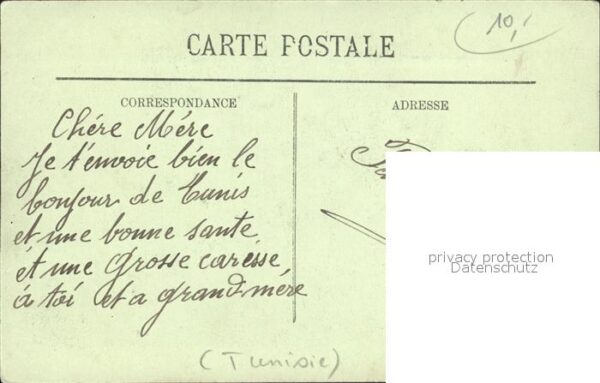 10,-
CARTE POSTALE
CORRESPONDANCE
ADRESSE
Chére Mére
Je t'envoie bien le
bonjour de Tunis
et une bonne sante
et une Grosse caresse
à toi et a grand-mére
privacy protection
Datenschutz
(Tunisie)